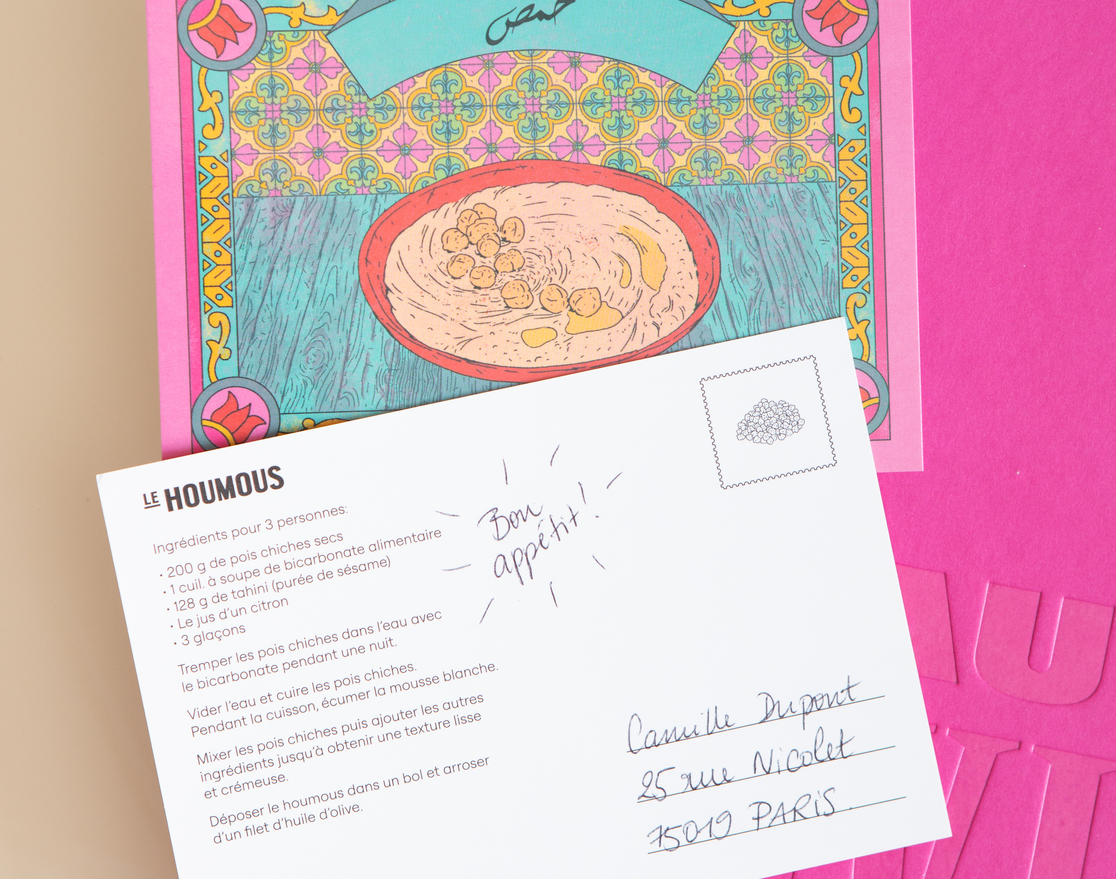 حمص
LE HOUMOUS
Ingrédients pour 3 personnes:
• 200 g de pois chiches secs
• 1 cuil. à soupe de bicarbonate alimentaire
• 128 g de tahini (purée de sésame)
• Le jus d'un citron
• 3 glaçons
Tremper les pois chiches dans l'eau avec
le bicarbonate pendant une nuit.
Vider l'eau et cuire les pois chiches.
Pendant la cuisson, écumer la mousse blanche.
Mixer les pois chiches puis ajouter les autres
ingrédients jusqu'à obtenir une texture lisse
et crémeuse.
Déposer le houmous dans un bol et arroser
d'un filet d'huile d'olive.
Bon
appétit!
Camille Dupont
25 rue Nicolet
75019 PARIS